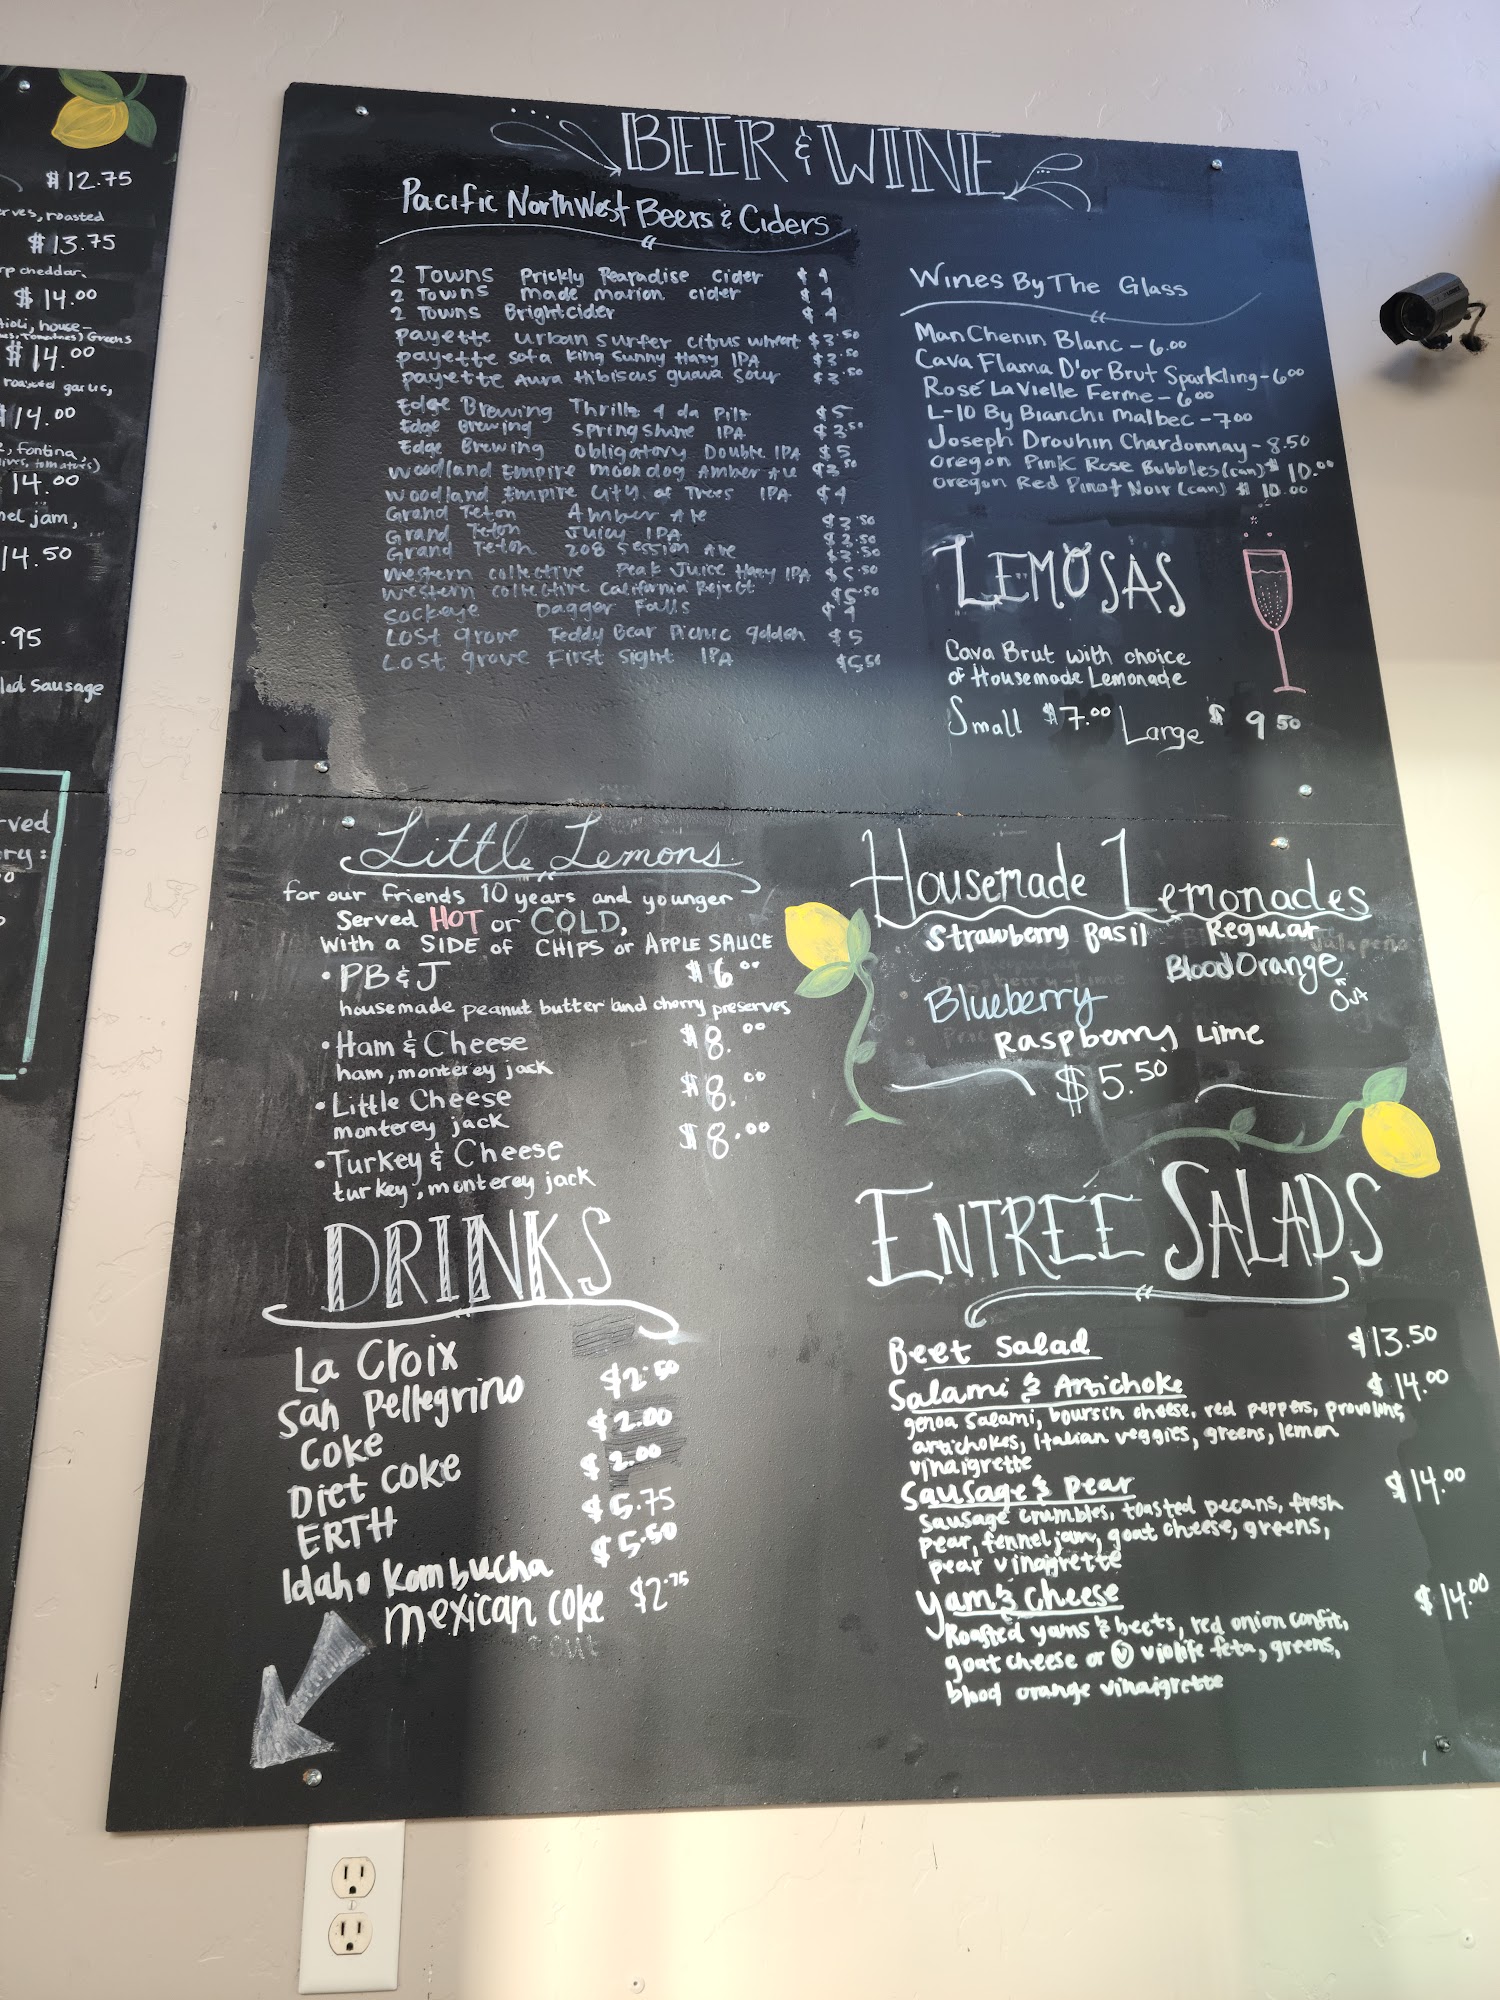 $12.75
erves, roasted
$13.75
rp cheddar,
$14.00
tioli, house-
Greens
$14.00
roasted garlic,
$14.00
, fontina,
14.00
nel jam,
14.50
.95
led sausage
rved
ry:
BEER & WINE
Pacific NorthWest Beers & Ciders
2 Towns Prickly Pearadise Cider $4
2 Towns made marion cider $4
2 Towns Brightcider $4
Payette urban surfer citrus wheat $3.50
payette sofa king Sunny Hazy IPA $3.50
payette Aura Hibiscus guava Sour $3.50
Edge Brewing Thrillz 4 da Pilz $5
Edge Brewing Springshine IPA $3.50
Edge Brewing Obligatory Double IPA $5
Woodland Empire moondog Amber Ale $3.50
Woodland Empire City of Trees IPA $4
Grand Teton Amber Ale $3.50
Grand Teton Juicy IPA $3.50
Grand Teton 208 Session Ale $3.50
Western collective Peak Juice Hazy IPA $5.50
Western collective California Reject $5.50
Sockeye Dagger Falls $4
Lost grove Teddy Bear Picnic golden $5
Lost grove First Sight IPA $5.50
Wines By The Glass
Man Chenin Blanc - 6.00
Cava Flama D'or Brut Sparkling - 6.00
Rosé La Vielle Ferme - 6.00
L-10 By Bianchi malbec - 7.00
Joseph Drouhin Chardonnay - 8.50
Oregon Pink Rose Bubbles (can) $10.00
Oregon Red Pinot Noir (can) $10.00
LEMOSAS
Cava Brut with choice
of Housemade Lemonade
Small $7.00 Large $9.50
Little Lemons
for our friends 10 years and younger
Served HOT or COLD,
with a SIDE of CHIPS or APPLE SAUCE
• PB & J $6.00
housemade peanut butter and cherry preserves
• Ham & Cheese $8.00
ham, monterey jack
• Little Cheese $8.00
monterey jack
• Turkey & Cheese $8.00
turkey, monterey jack
Housemade Lemonades
Strawberry Basil Regular
Jalapeño
Blood Orange
Out
Blueberry
Raspberry Lime
$5.50
DRINKS
La Croix
San Pellegrino $2.50
Coke $2.00
Diet Coke $2.00
ERTH $5.75
Idaho Kombucha $5.50
mexican coke $2.75
out
ENTREE SALADS
Beet Salad $13.50
Salami & Artichoke $14.00
genoa salami, boursin cheese, red peppers, provolone,
artichokes, Italian veggies, greens, lemon
vinaigrette
Sausage & pear $14.00
Sausage crumbles, toasted pecans, fresh
pear, fennel jam, goat cheese, greens,
pear vinaigrette
Yam & Cheese $14.00
Roasted yams & beets, red onion confit,
goat cheese or V violife feta, greens,
blood orange vinaigrette